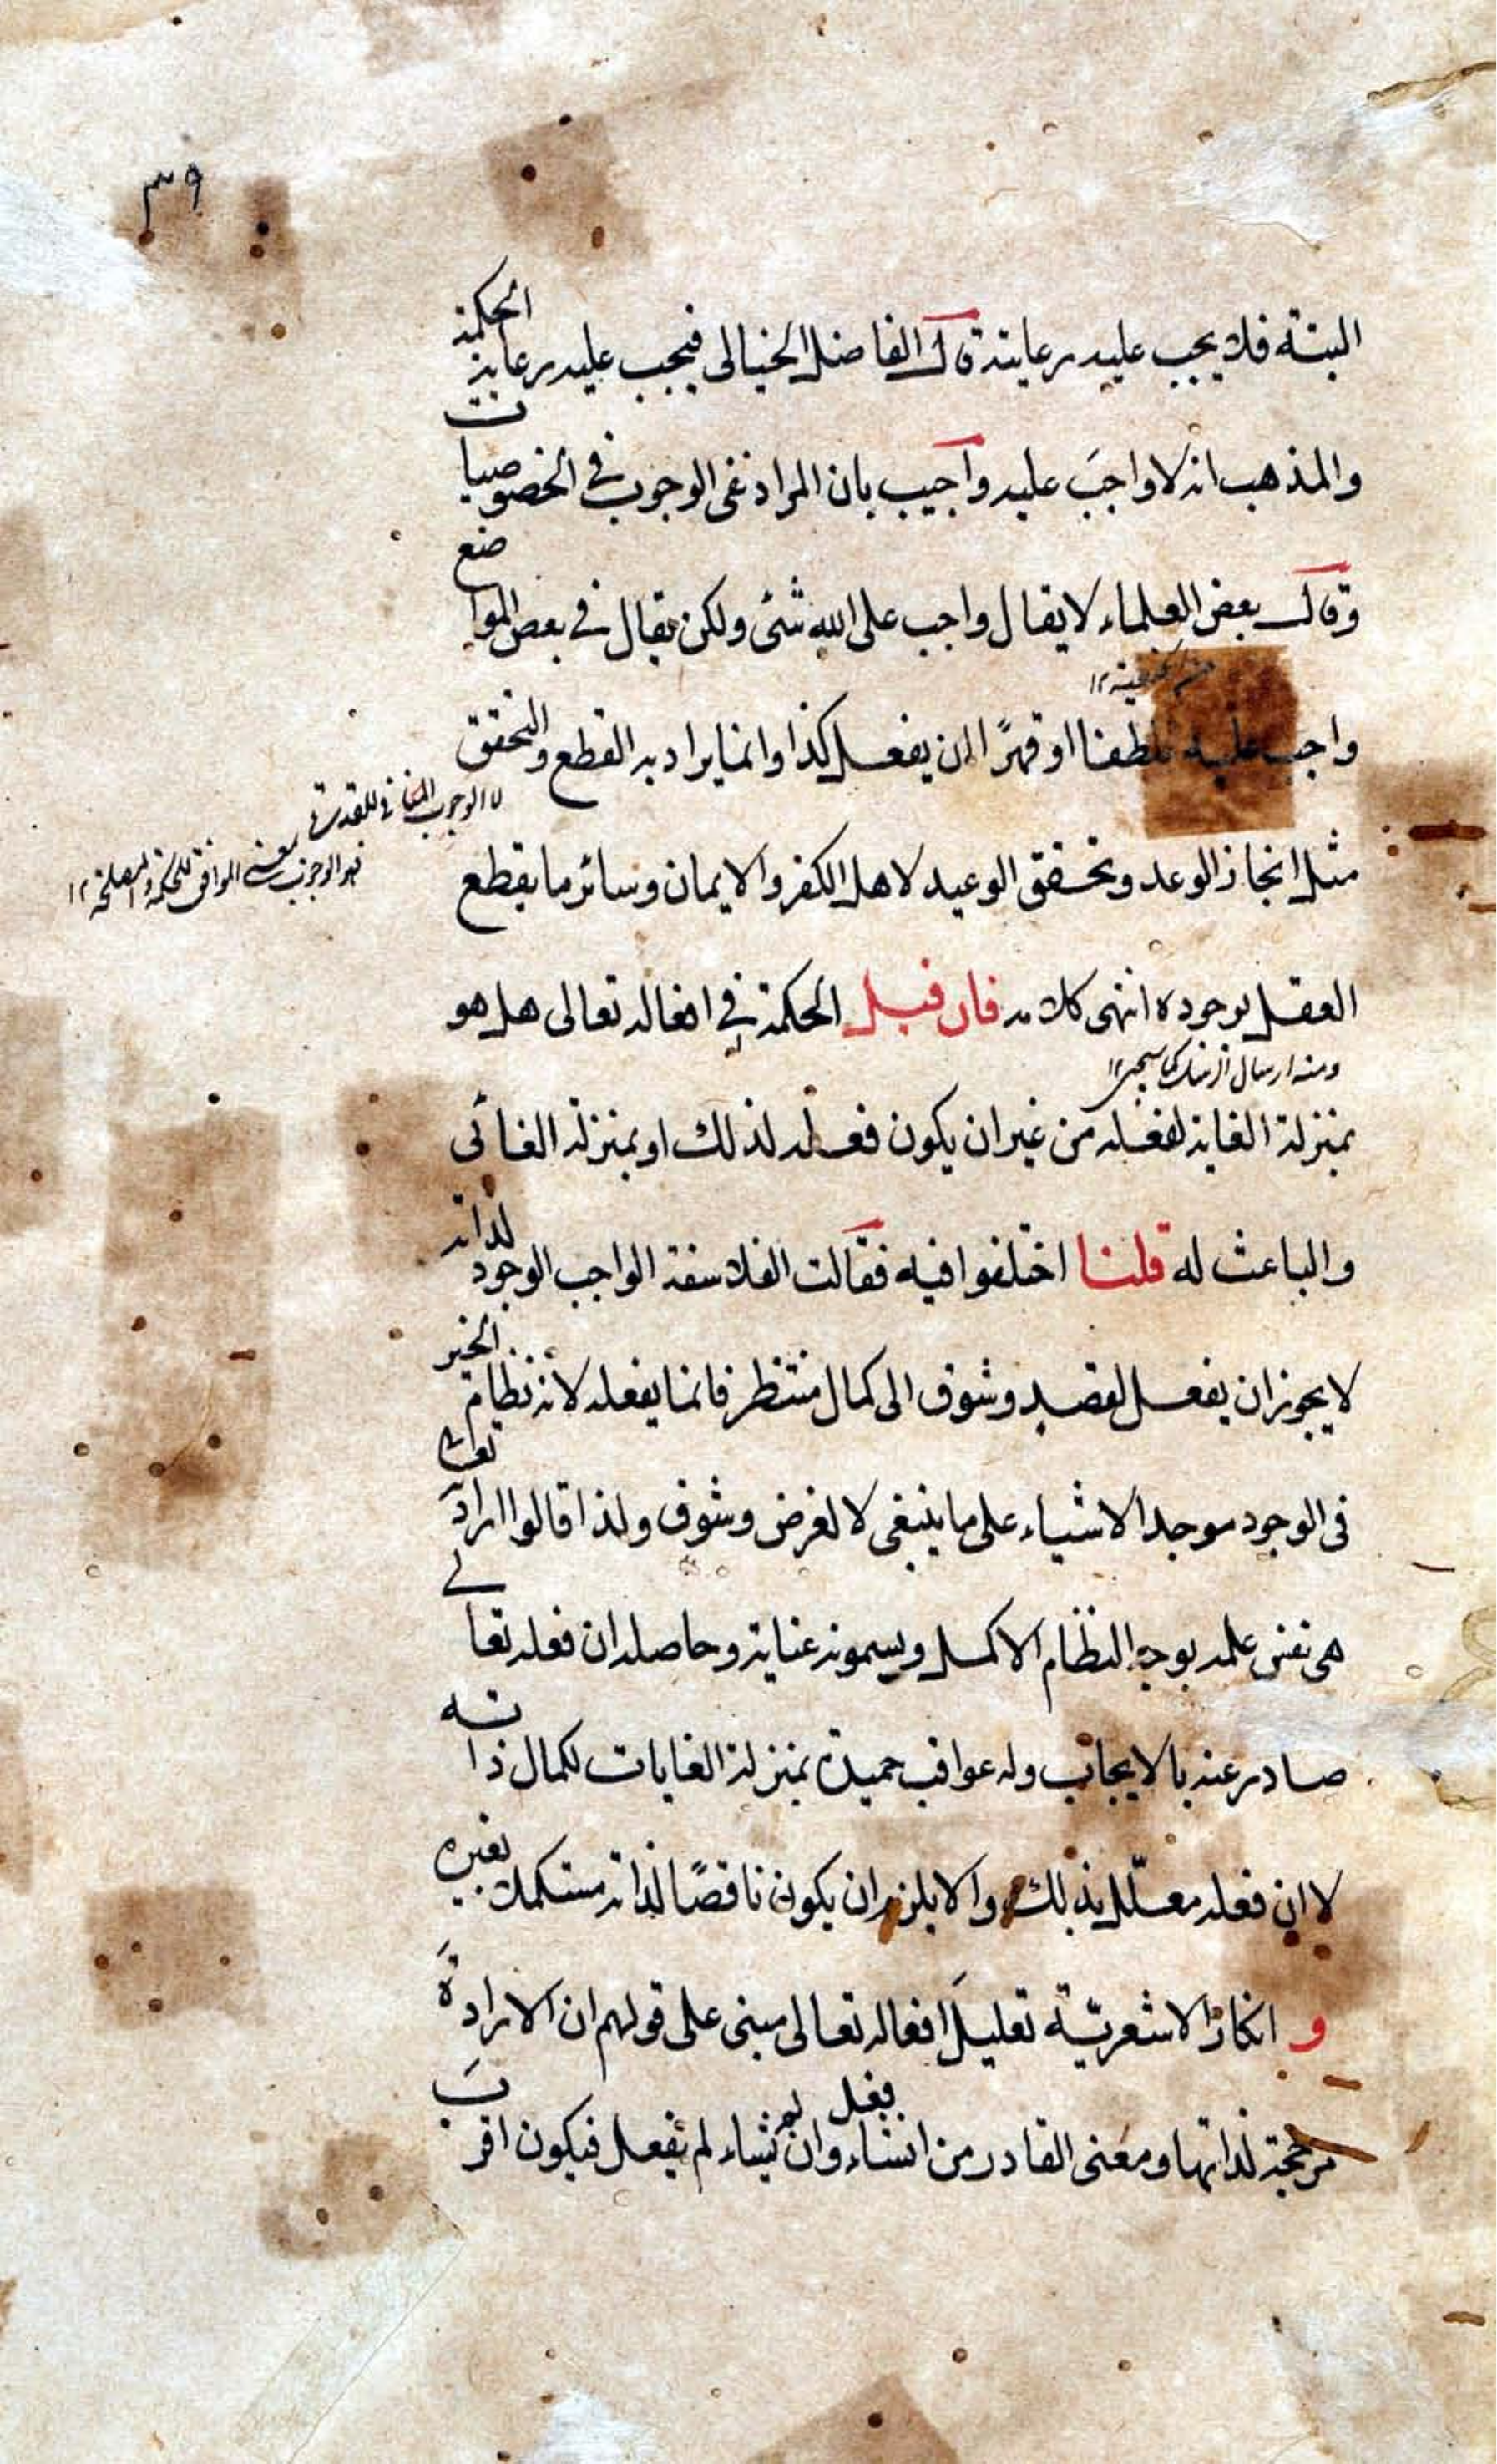 ٣٩
البتة فلا يجب عليه رعايته قال الفاضل الخيالى فيجب عليه رعاية الحكمة
والمذهب انه لا واجبَ عليه واجيب بان المراد نفى الوجوب فى الخصوصيات
وقال بعض العلماء لا يقال واجب على الله شئ ولكن يقال فى بعض المواضع
واجب عليه تلطفا او قهرًا ان يفعل كذا وانما يراد به القطع والتحقق
لا الوجوب المنافى للقدرة
فهو الوجوب بمعنى الموافق للحكمة والمصلحة ١٢
مثل انجاز الوعد وتحقق الوعيد لاهل الكفر والايمان وسائر ما يقطع
العقل بوجوده انتهى كلامه فان قيل الحكمة فى افعاله تعالى هل هو
ومنه ارسال الرسل كما سيجئ ١٢
بمنزلة الغاية لفعله من غير ان يكون فعله لذلك او بمنزلة الغائى
والباعث له قلنا اختلفوا فيه فقالت الفلاسفة الواجب الوجود لذاته
لا يجوز ان يفعل لقصد وشوق الى كمال منتظر فانما يفعله لانه نظام الخير
فى الوجود موجد الاشياء على ما ينبغى لا لغرض وشوق ولذا قالوا ارادته
هى نفس علمه بوجه النظام الاكمل ويسمونه عناية وحاصله ان فعله تعالى
صادر عنه بالايجاب وله عواقب حميدة بمنزلة الغايات لكمال ذاته
لا ان فعله معلّل بذلك والا يلزم ان يكون ناقصًا لذاته مستكملا بغيره
و انكار الاشعريّة تعليلَ افعاله تعالى مبنى على قولهم ان الارادةَ
مرجحة لذاتها ومعنى القادر من انشاء يفعل وان لم يشاء لم يفعل فيكون اقربَ